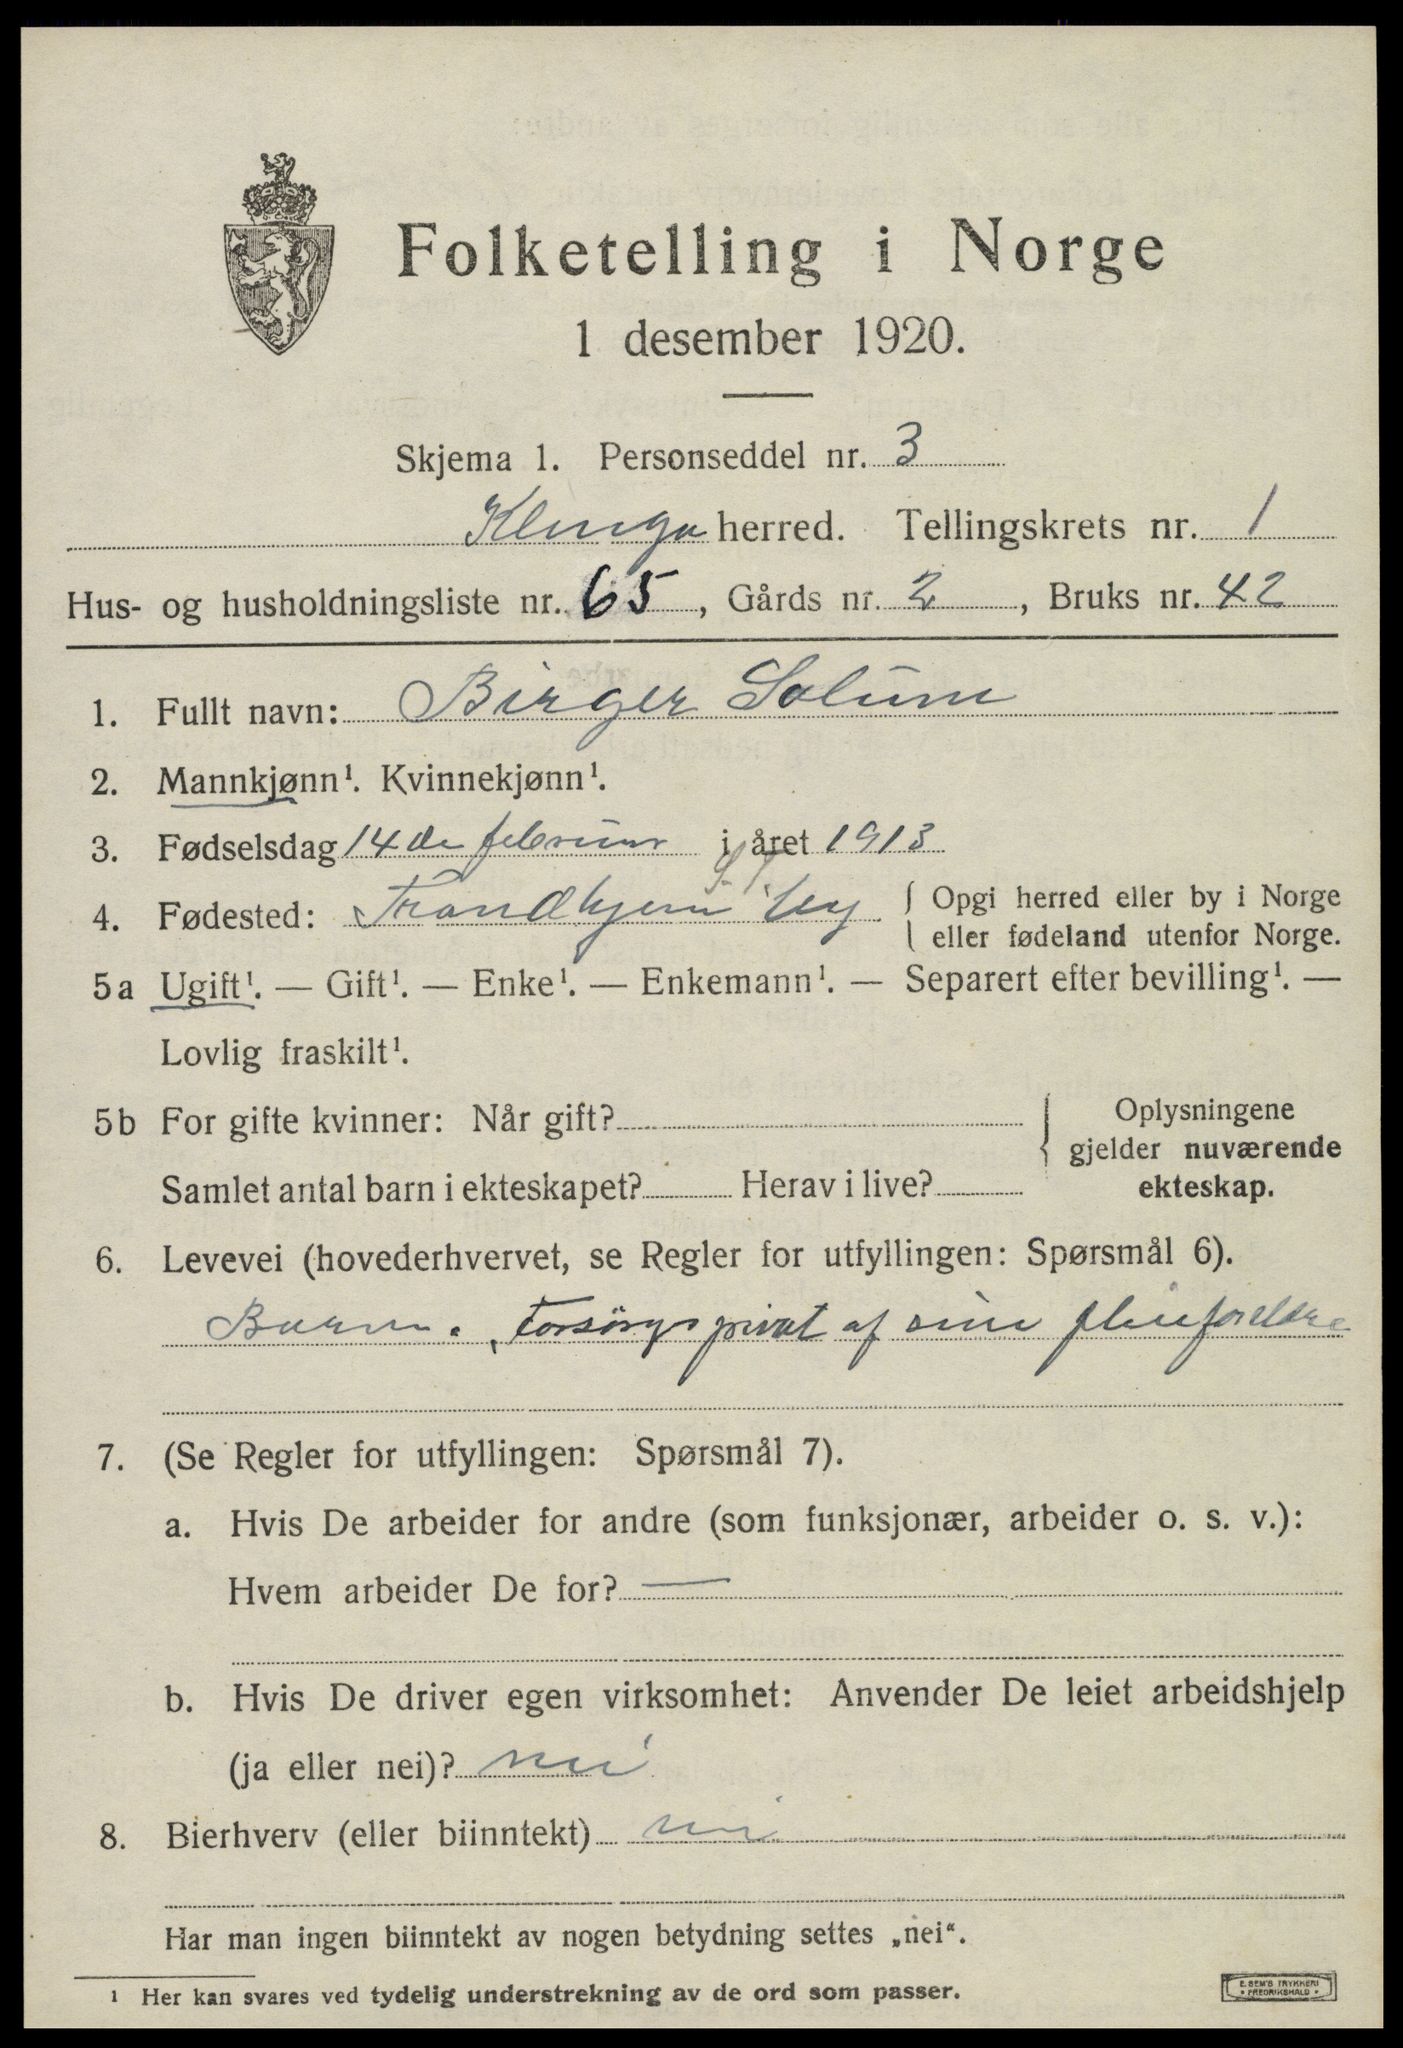 Folketelling i Norge
1 desember 1920.
Skjema 1. Personseddel nr. 3
Klinga herred. Tellingskrets nr. 1
Hus- og husholdningsliste nr. 65, Gårds nr. 2, Bruks nr. 42
1. Fullt navn: Birger Solum
2. Mannkjønn¹. Kvinnekjønn¹.
3. Fødselsdag 14de februar i året 1913
S.T.
4. Fødested: Trondhjem by { Opgi herred eller by i Norge
eller fødeland utenfor Norge.
5a Ugift¹. — Gift¹. — Enke¹. — Enkemann¹. — Separert efter bevilling¹. —
Lovlig fraskilt¹.
5b For gifte kvinner: Når gift? { Oplysningene
gjelder nuværende
Samlet antal barn i ekteskapet? Herav i live? ekteskap.
6. Levevei (hovederhvervet, se Regler for utfyllingen: Spørsmål 6).
Barn. Forsörges privat af sine pleieforeldre
7. (Se Regler for utfyllingen: Spørsmål 7).
a. Hvis De arbeider for andre (som funksjonær, arbeider o. s. v.):
Hvem arbeider De for? —
b. Hvis De driver egen virksomhet: Anvender De leiet arbeidshjelp
(ja eller nei)? nei
8. Bierhverv (eller biinntekt) nei
Har man ingen biinntekt av nogen betydning settes „nei“.
¹ Her kan svares ved tydelig understrekning av de ord som passer.
E. SEM'S TRYKKERI
• FREDRIKSHALD •